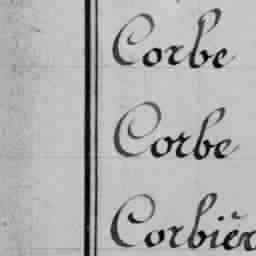 Corbe
Corbe
Corbièr